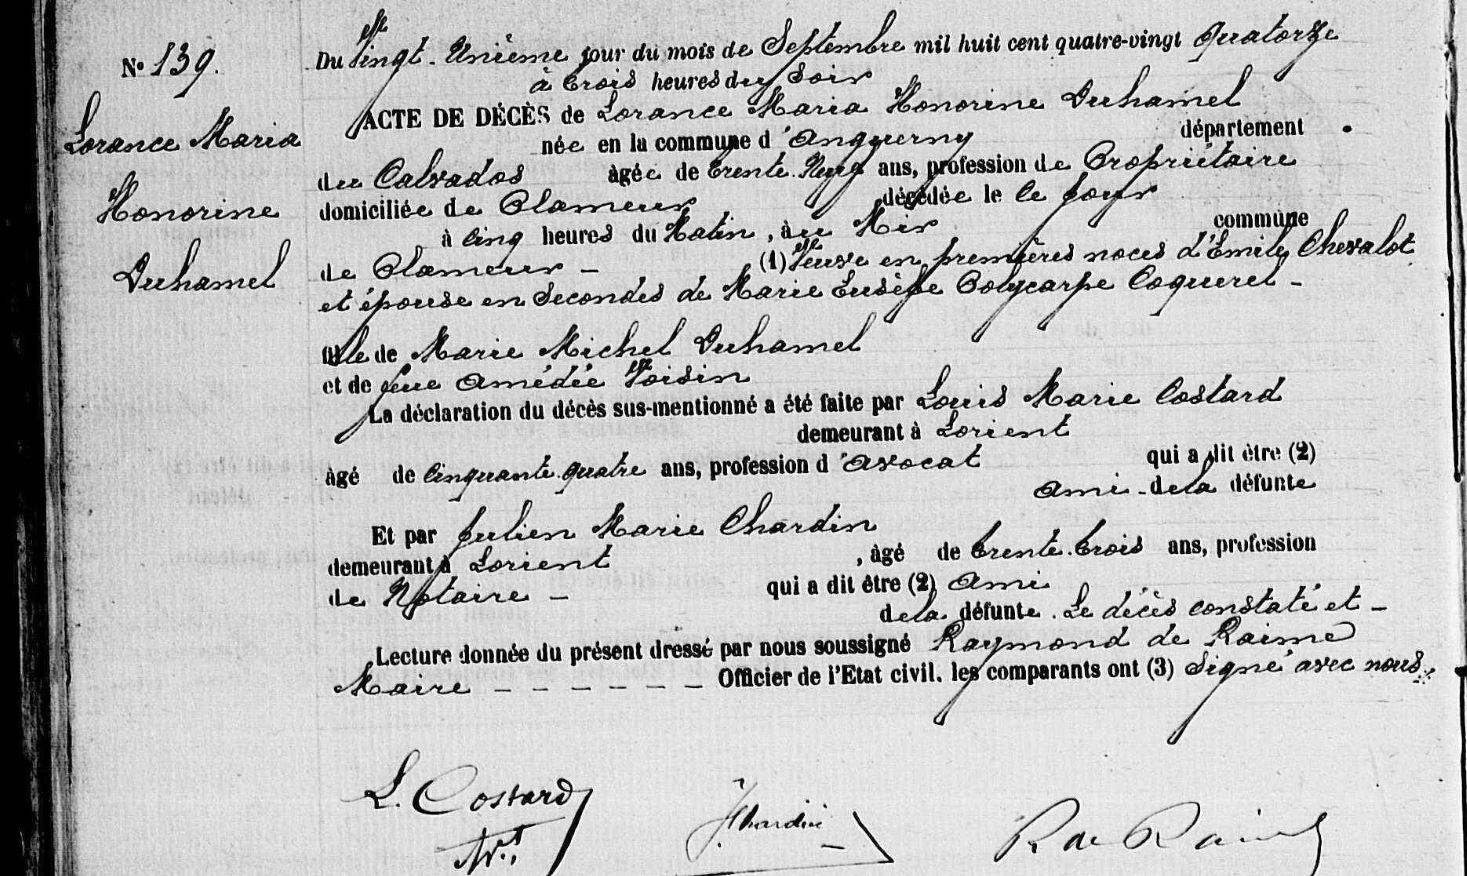 N° 139.
Lorance Maria
Honorine
Duhamel
Du Vingt-Unième jour du mois de Septembre mil huit cent quatre-vingt Quatorze
à trois heures du Soir
ACTE DE DÉCÈS de Lorance Maria Honorine Duhamel
née en la commune d'Anguerny département
du Calvados âgée de trente-Neuf ans, profession de Propriétaire
domiciliée de Plœmeur décédée le ce jour
à cinq heures du Matin, au Mir commune
de Plœmeur - (1) Veuve en premières noces d'Emile Chevalot
et épouse en secondes de Marie Eusèbe Polycarpe Coquerel -
fille de Marie Michel Duhamel
et de feue Amédée Voisin
La déclaration du décès sus-mentionné a été faite par Louis Marie Costard
demeurant à Lorient
âgé de cinquante-quatre ans, profession d'avocat qui a dit être (2)
ami de la défunte
Et par Julien Marie Chardin
demeurant à Lorient, âgé de trente-trois ans, profession
de Notaire - qui a dit être (2) ami
de la défunte. Le décès constaté et -
Lecture donnée du présent dressé par nous soussigné Raymond de Raime
Maire - - - - - - - Officier de l'Etat civil. les comparants ont (3) signé avec nous
L. Costard
J Chardin
R de Raime